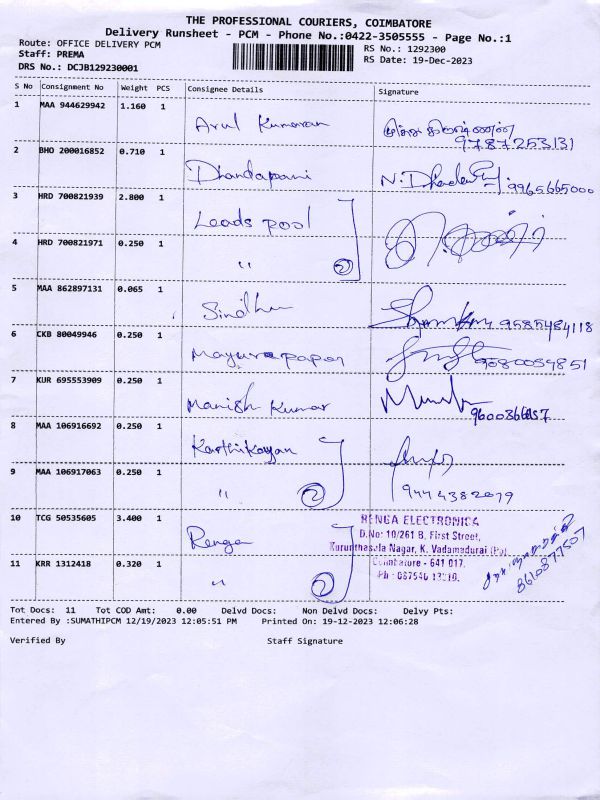 THE PROFESSIONAL COURIERS, COIMBATORE
Delivery Runsheet - PCM - Phone No.:0422-3505555 - Page No.:1
Route: OFFICE DELIVERY PCM
RS No.: 1292300
Staff: PREMA
RS Date: 19-Dec-2023
DRS No.: DCJB129230001
S No Consignment No Weight PCS Consignee Details Signature
1 MAA 944629942 1.160 1
Arul Kumaran
9787253131
2 BHO 200016852 0.710 1
Dhandapani N. 9965665000
3 HRD 700821939 2.800 1
Leads pool
4 HRD 700821971 0.250 1
" 2
5 MAA 862897131 0.065 1
Sindhu 9585484118
6 CKB 80049946 0.250 1
Mayura paper 9580059851
7 KUR 695553909 0.250 1
Manish Kumar
8 MAA 106916692 0.250 1
Karthikayan
9 MAA 106917063 0.250 1
" 2 9444382079
10 TCG 50535605 3.400 1
RENGA ELECTRONICS
D.No: 10/261 B, First Street,
Renga
Kurunthasala Nagar, K. Vadamadurai (Po)
11 KRR 1312418 0.320 1
Coimbatore - 641 017.
" 2
8610877507
Tot Docs: 11 Tot COD Amt: 0.00 Delvd Docs: Non Delvd Docs: Delvy Pts:
Entered By :SUMATHIPCM 12/19/2023 12:05:51 PM Printed On: 19-12-2023 12:06:28
Verified By Staff Signature